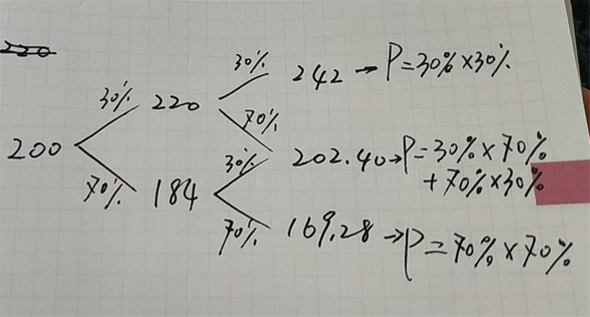 220
30% 242 → P=30%×30%
30% 220
70%
200 202.40→P=30%×70%
30% +70%×30%
70% 184
70% 169.28→P=70%×70%